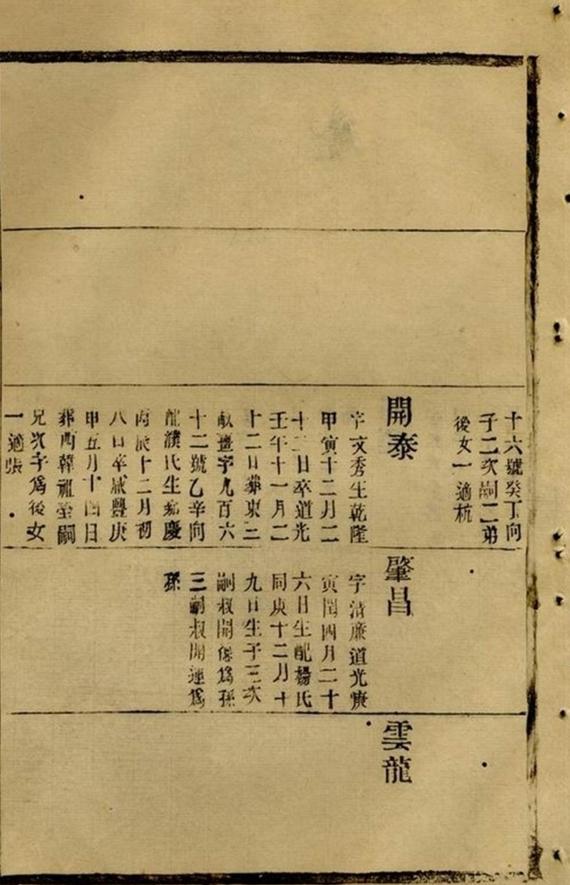 十六號癸丁向
子二次嗣二弟
後女一適杭
開泰
字文秀生乾隆
甲寅十二月二
十二日卒道光
壬午十一月二
十二日葬東三
畝盡字九百六
十二號乙辛向
配濮氏生嘉慶
丙辰十二月初
八日卒咸豐庚
申五月十四日
葬西韓祖塋嗣
兄次子為後女
一適張
肇昌
字清廉道光庚
寅閏四月二十
六日生配楊氏
同庚十二月十
九日生子三次
嗣叔開傑為孫
三嗣叔開運為
孫
雲龍